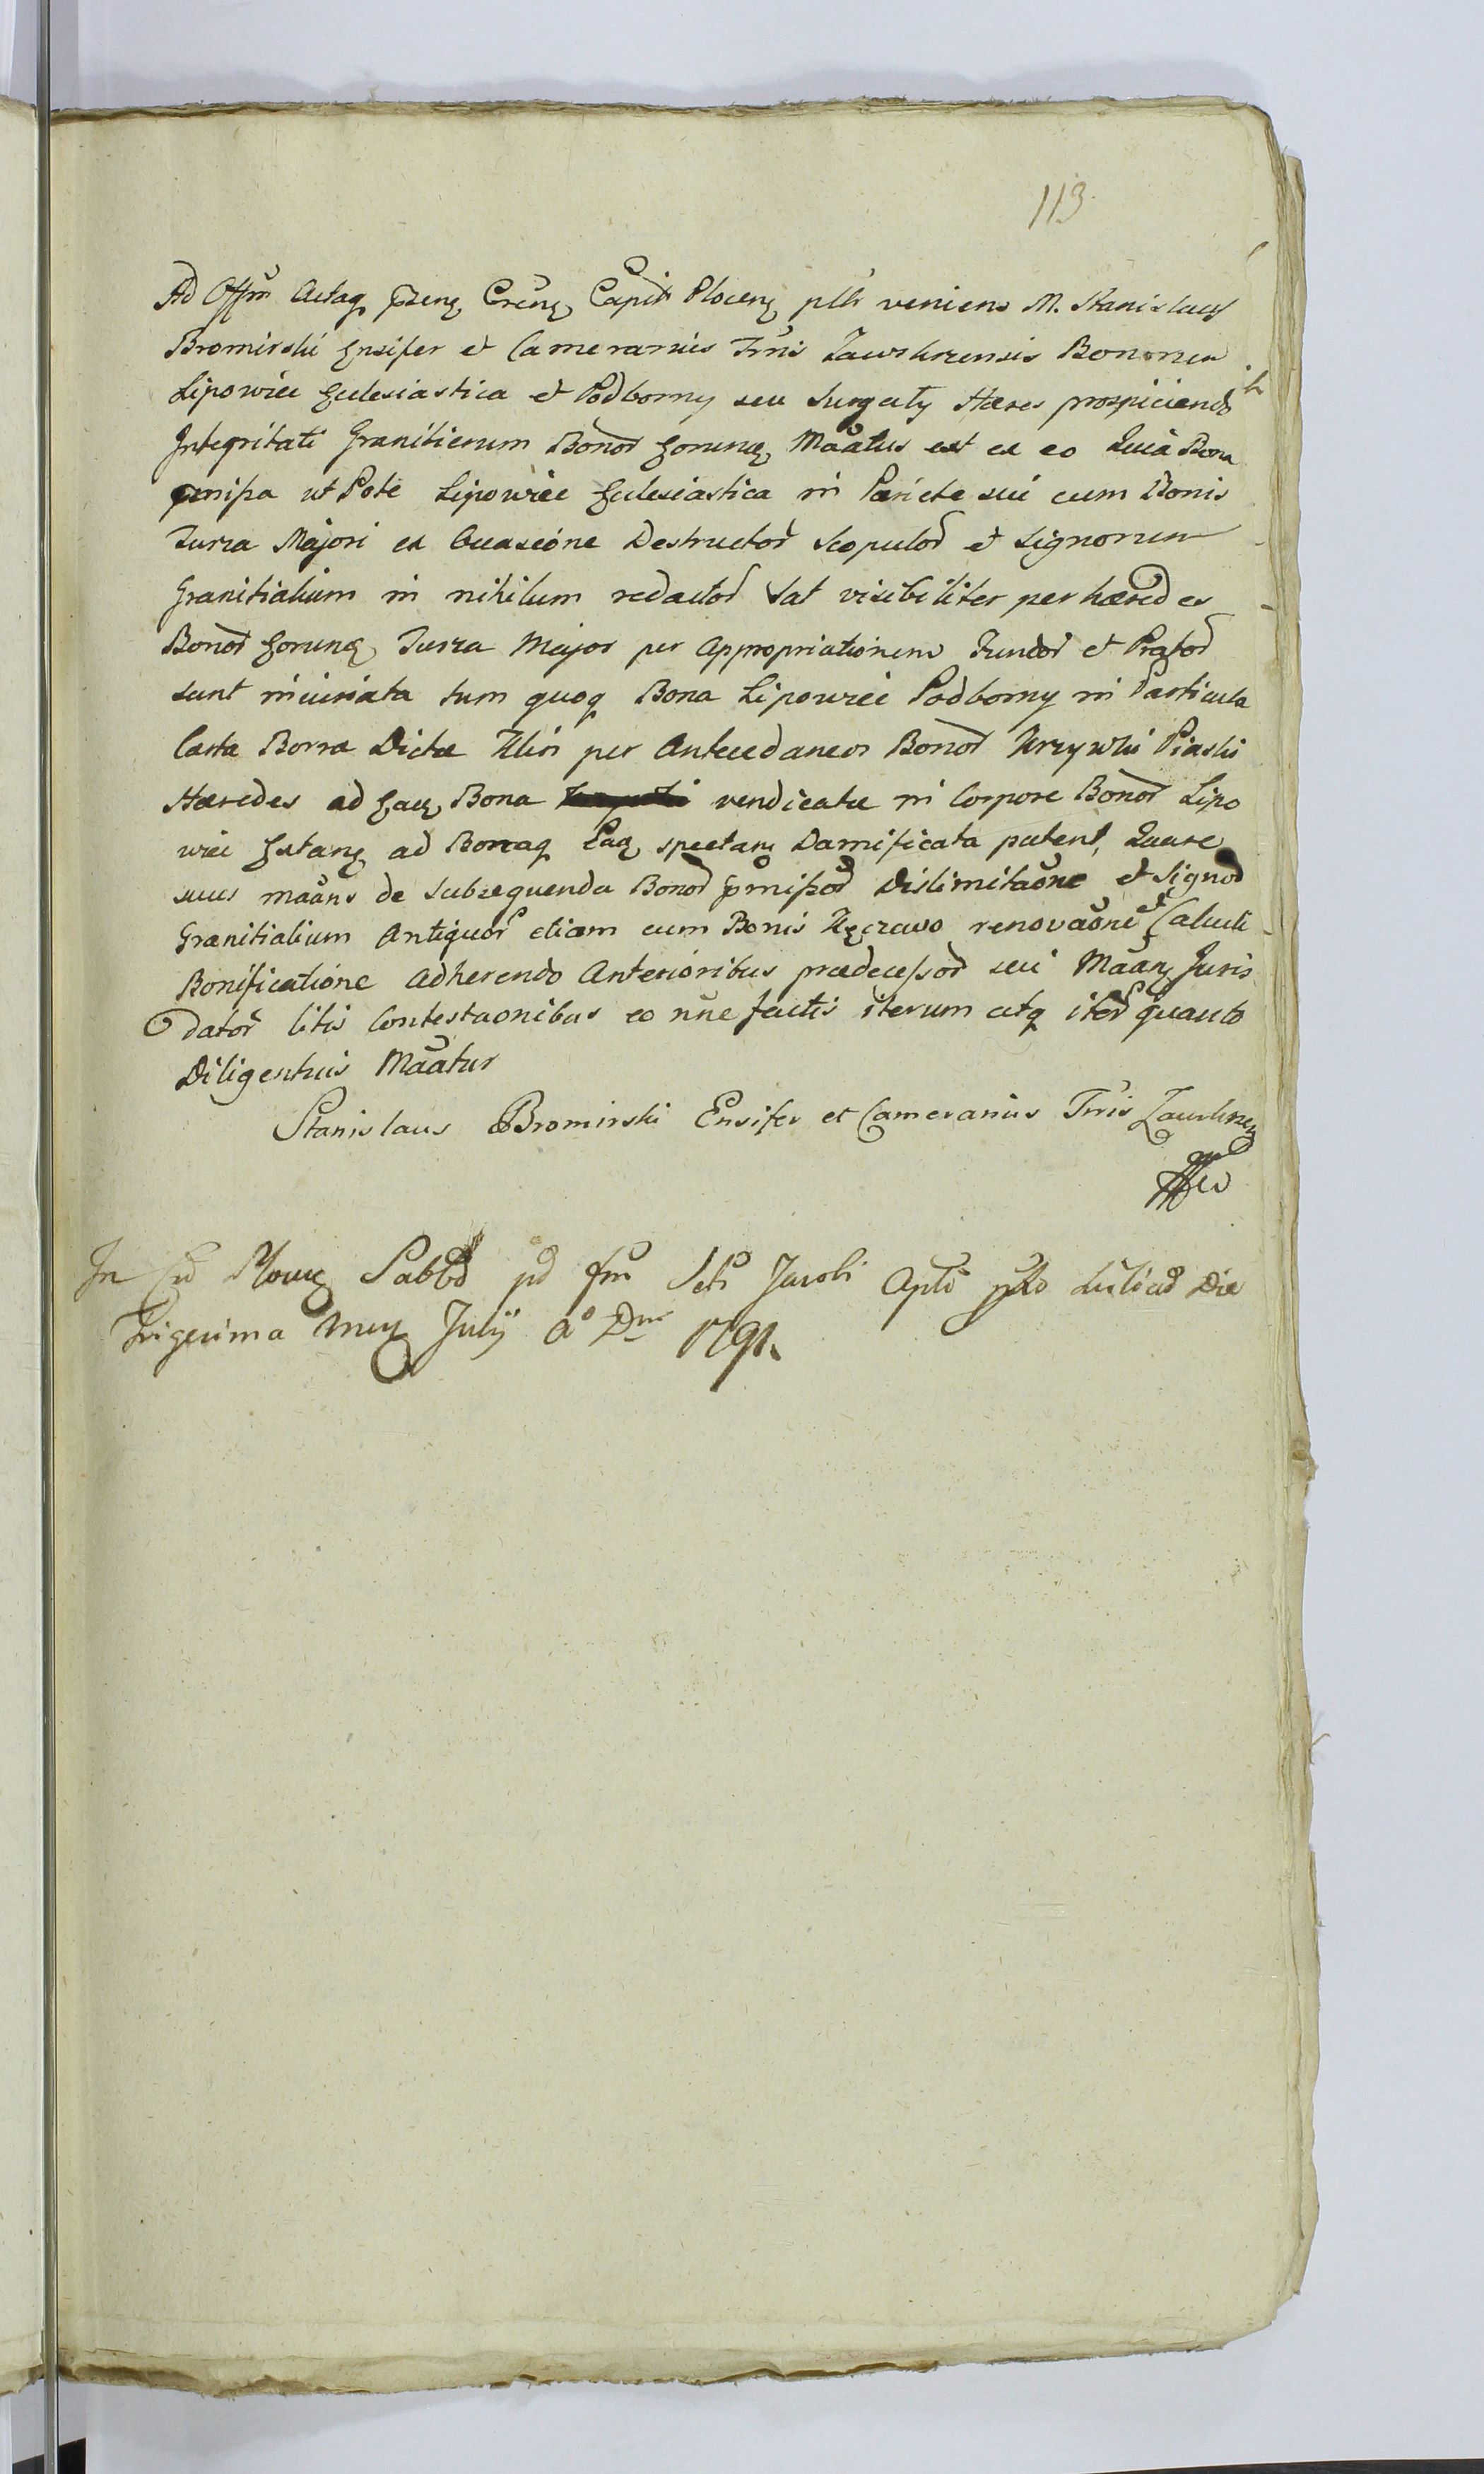 113
Ad Offm Actaq Pzenz Crenz Capit Plocenz pltr veniens M. Stanislaus
Bromirski Ensifer et Cameranius Trris Zawskrzensis Bononum
Lipowiec Ecclesiastica et Podborny seu Surgaty Hæres prospiciendo
Integritati Granitierum Bonor horunz Maatus est ex eo Quia Bona
pmissa ut Pote Lipowiec Ecclesiastica in Pariete sui cum Bonis
Turza Majori ex Occasione Destructor Scopulor et Signorum
Granitialium in nihilum redactor sat visibiliter per hæredes
Bonor horunz Turza Major per Appropriationem Fundor et Prator
sunt iniuriata tum quoq Bona Lipowiec Podborny in Particula
Certa Borræ Dictæ Klin per Antecedaneos Bonor Krzywki Piaski
Hæredes ad hæcz Bona vendicatæ in Corpore Bonor Lipo
wiec Extanz ad Borraq Eaq spectanz Damificata patent, Quare
suus maans de Subsequenda Bonor pmissor Dislimitaone et Signor
Granitialium Antiquor etiam cum Bonis renovaone et Calculi
Bonificatione Adherendo Anterioribus prædecessor sui Maanz Juris
dator litis Contestaonibus eo nne factis iterum atq iter quanto
Diligentius Maatur
Stanislaus Bromirski Ensifer et Cameranius Trris Zawskrzenz
In Plocenz Sabbo pd fm Scti Jacobi Apli Die
Trigesima Menz Julij Ao Dni 1791.